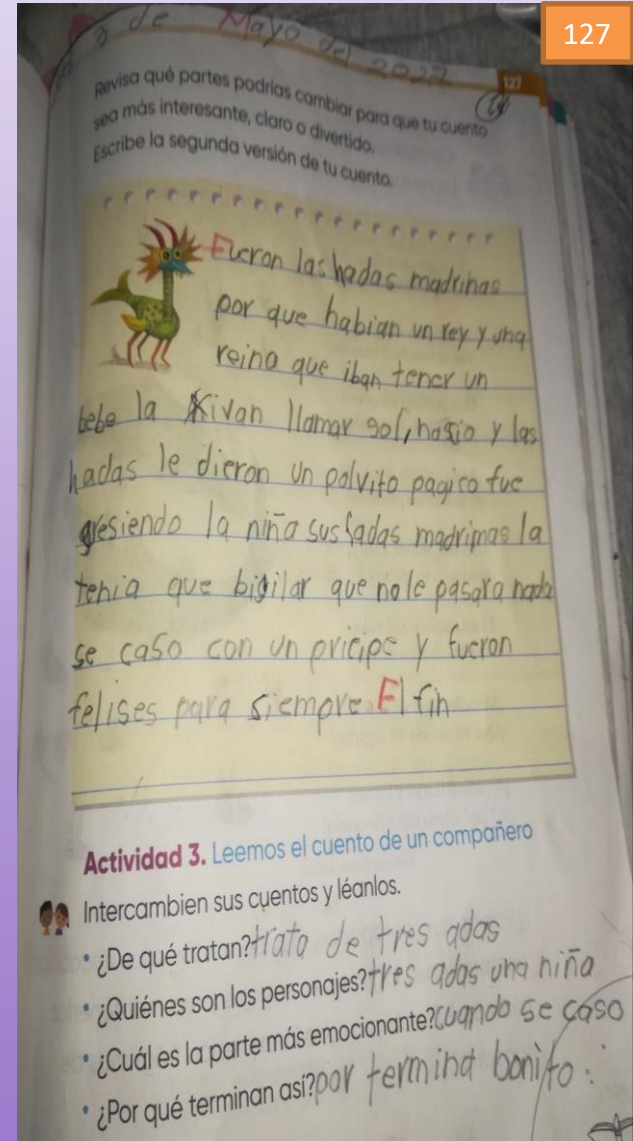 127
3 de Mayo del 2022
127
Revisa qué partes podrías cambiar para que tu cuento
sea más interesante, claro o divertido.
Escribe la segunda versión de tu cuento.
Fueron las hadas madrinas
por que habian un rey y una
reina que iban tener un
bebe la ivan llamar sol, nasio y las
hadas le dieron un polvito pagico fue
gresiendo la niña sus hadas madrimas la
tenia que bigilar que no le pasara nada
se caso con un pricipe y fueron
felises para siempre El fin
Actividad 3. Leemos el cuento de un compañero
Intercambien sus cuentos y léanlos.
• ¿De qué tratan? trato de tres adas
• ¿Quiénes son los personajes? tres adas una niña
• ¿Cuál es la parte más emocionante? cuando se caso
• ¿Por qué terminan así? por termina bonito.